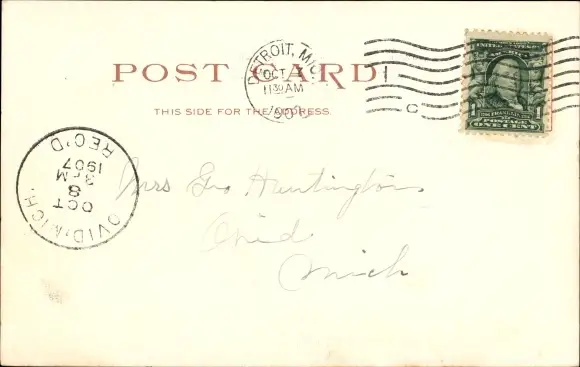 POST CARD
THIS SIDE FOR THE ADDRESS.
DETROIT, MICH.
OCT
11 30 AM
C
UNITED STATES
FRANKLIN
1 POSTAGE 1
ONE CENT
OVID, MICH.
OCT
8
3 PM
1907
REC'D
Mrs Geo Huntington
Ovid
Mich